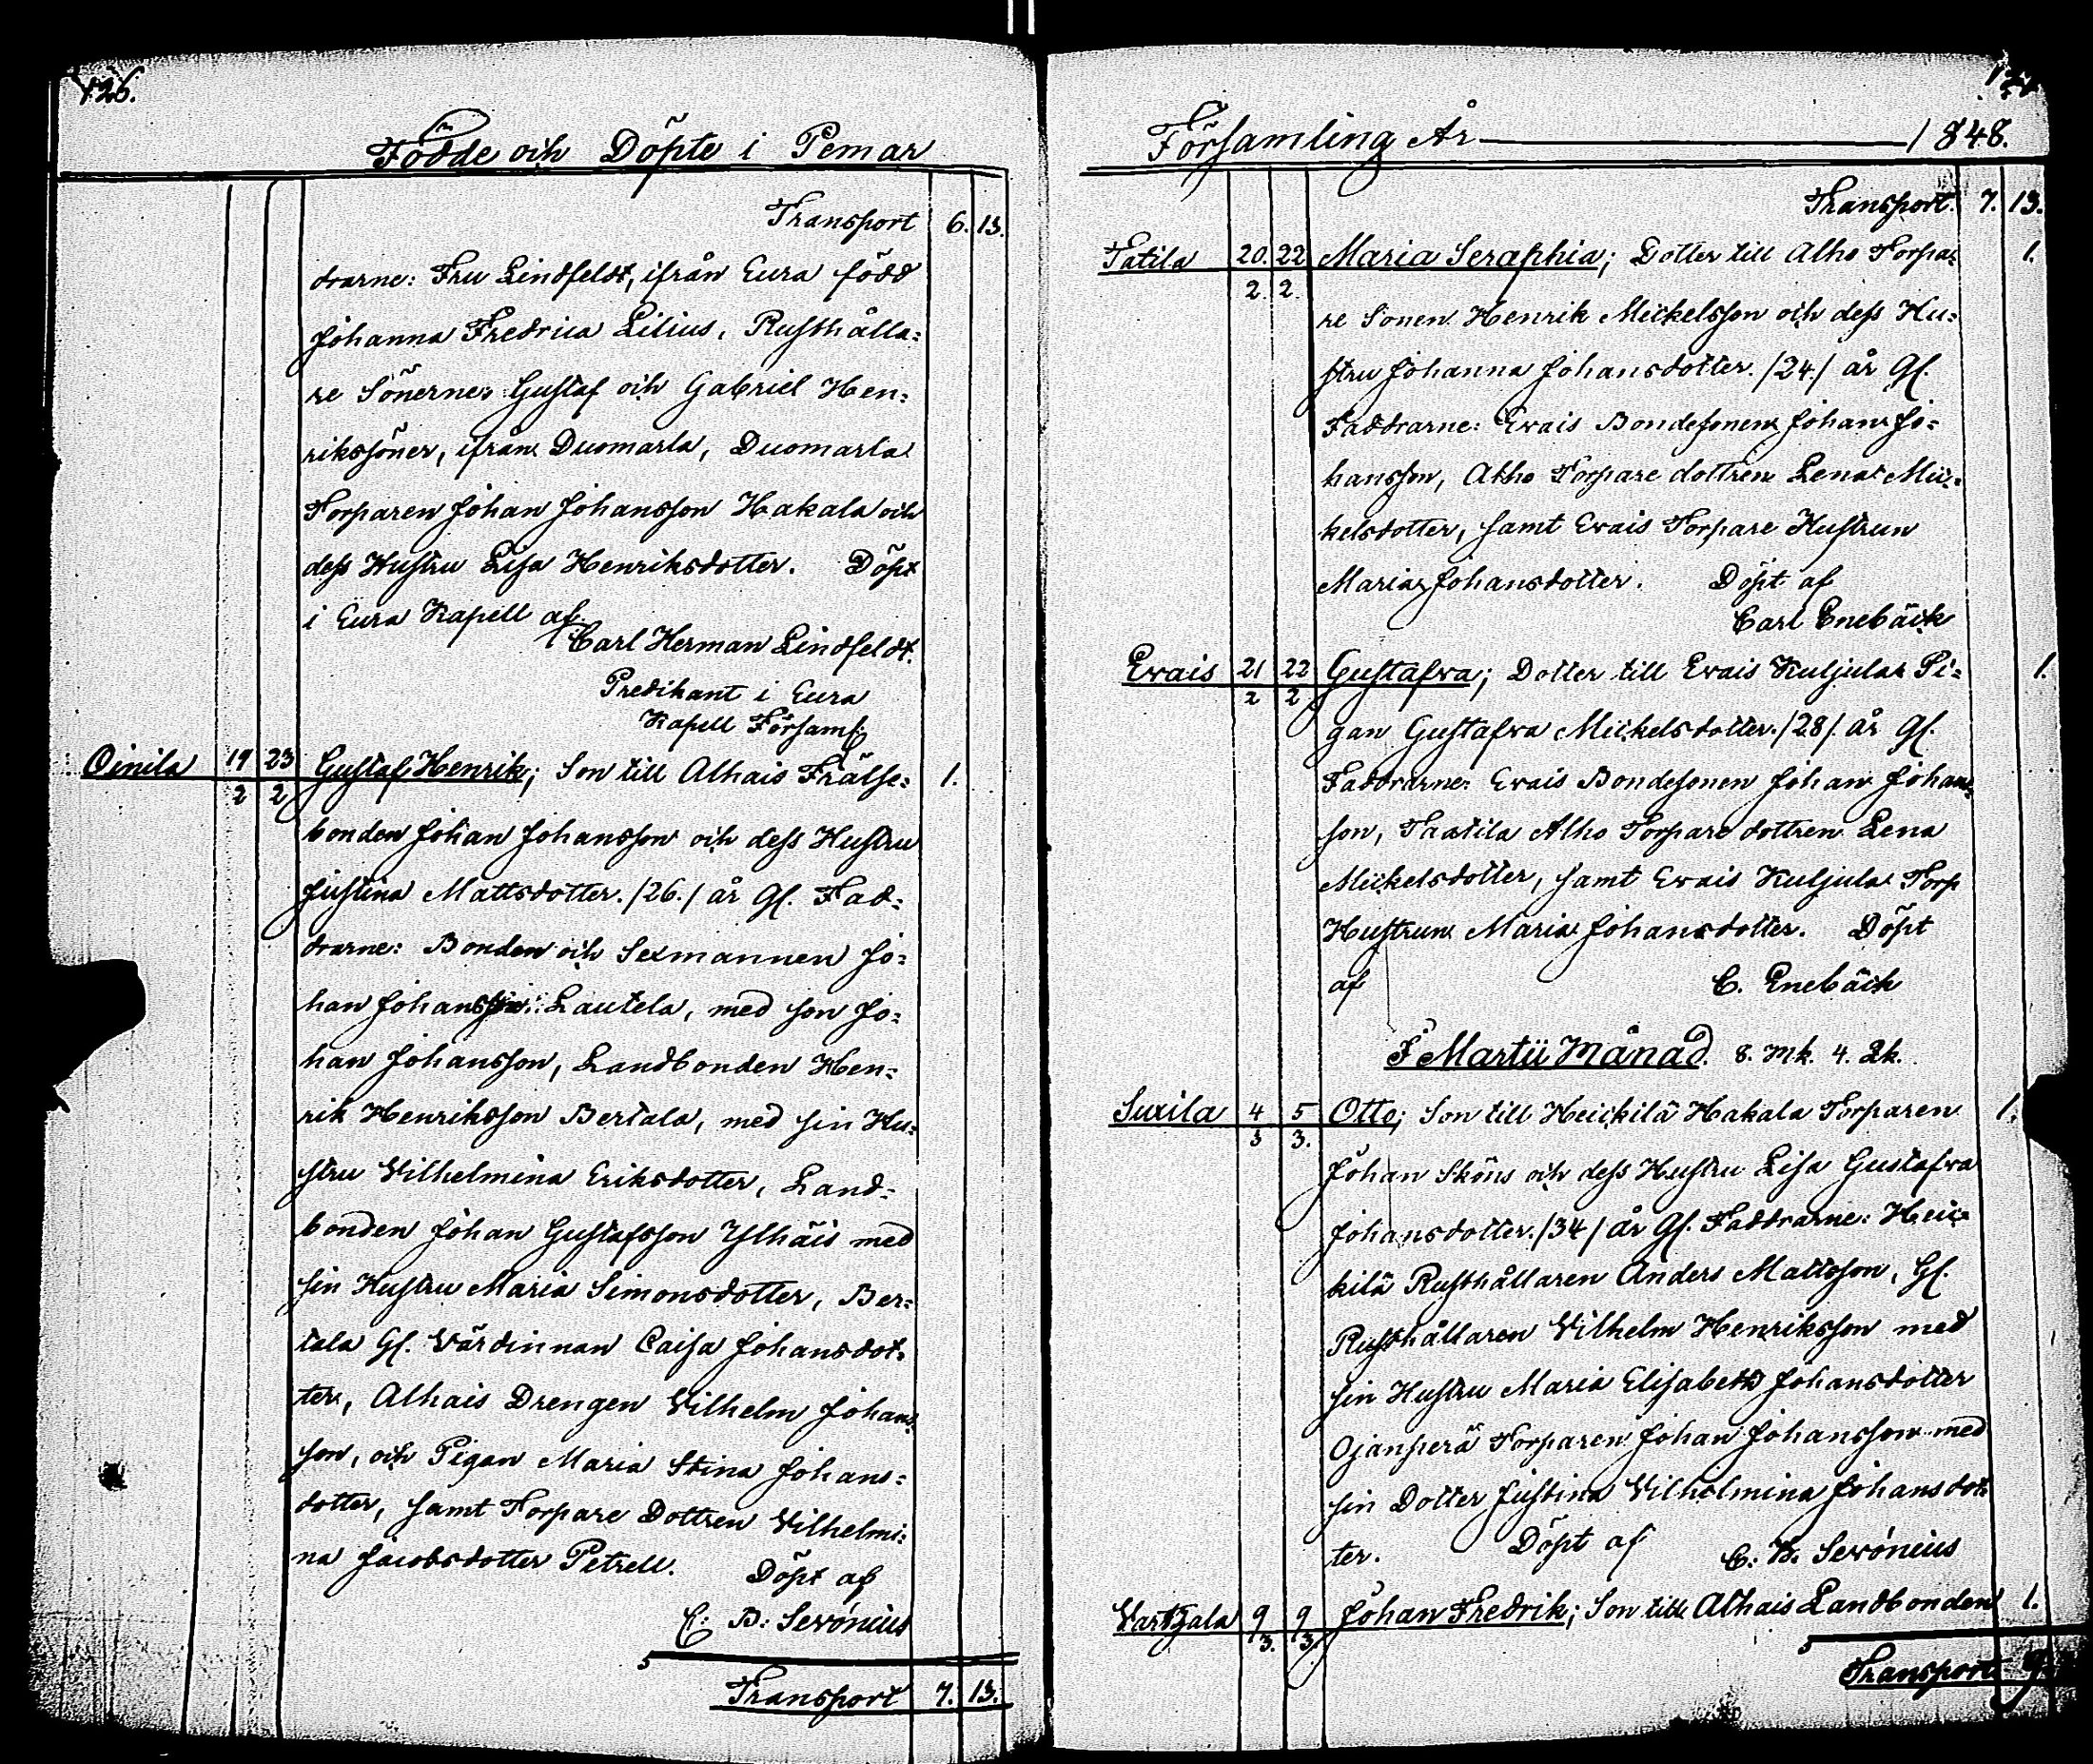 126.
Födde och Döpte i Pemar
Transport 6. 13.
drarne: Fru Lindfeldt, ifrån Eura född
Johanna Fredrica Lilius, Rusthålla=
re Sönerne Gustaf och Gabriel Hen=
rikssöner, ifrån Duomarla, Duomarla
Torparen Johan Johansson Hakala och
dess Hustru Lisa Henriksdotter. Döpt
i Eura Kapell af
Carl Herman Lindfeldt.
Predikant i Eura
Kapell Församl.
Oinila 19/2 23/2 Gustaf Henrik; Son till Alhais Frälse= 1.
bonden Johan Johansson och dess Hustru
Justina Mattsdotter. /26./ år Gl. Fad=
drarne: Bonden och Sexmannen Jo=
han Johansson Lautela, med son Jo=
han Johansson, Landbonden Hen=
rik Henriksson Bertala, med sin Hu=
stru Wilhelmina Eriksdotter, Land=
bonden Johan Gustafsson Ylhäis med
sin Hustru Maria Simonsdotter, Ber=
tala Gl. Värdinnan Caisa Johansdot=
ter, Alhais Drengen Wilhelm Johans=
son, och Pigan Maria Stina Johans=
dotter, samt Torpare Dottren Wilhelmi=
na Jacobsdotter Petrell. Döpt af
C: B: Serónius
Transport 7. 13.
Församling År 1848.
Transport. 7. 13.
Tatila 20./2. 22/2. Maria Seraphia; Dotter till Alho Torpa= 1.
re Sonen Henrik Mickelsson och dess Hu=
stru Johanna Johansdotter. /24./ år Gl.
Faddrarne: Evais Bondesonen Johan Jo=
hansson, Alho Torpare dottren Lena Mic=
kelsdotter, samt Evais Torpare Hustrun
Maria Johansdotter. Döpt af
Carl Enebäck
Evais 21/2 22/2 Gustafva; Dotter till Evais Kuljula Pi= 1.
gan Gustafva Mickelsdotter. /28/. år Gl.
Faddrarne: Evais Bondesonen Johan Johans=
son, Taatila Alho Torpare dottren Lena
Mickelsdotter, samt Evais Kuljula Torp
Hustrun Maria Johansdotter. Döpt
af C. Enebäck
I Martii Månad. 8. Mk. 4. Qk.
Suxila 4/3 5/3. Otto; Son till Heickilä Hakala Torparen 1.
Johan Sköns och dess Hustru Lisa Gustafva
Johansdotter. /34/ år Gl. Faddrarne: Heic=
kilä Rusthållaren Anders Mattsson, Gl.
Rusthållaren Wilhelm Henriksson med
sin Hustru Maria Elisabeth Johansdotter
Ojanperä Torparen Johan Johansson med
sin Dotter Justina Wilhelmina Johansdot=
ter. Döpt af C: B. Serónius
9/3. 9/3. Johan Fredrik; Son till Alhais Landbonden 1.
Transport